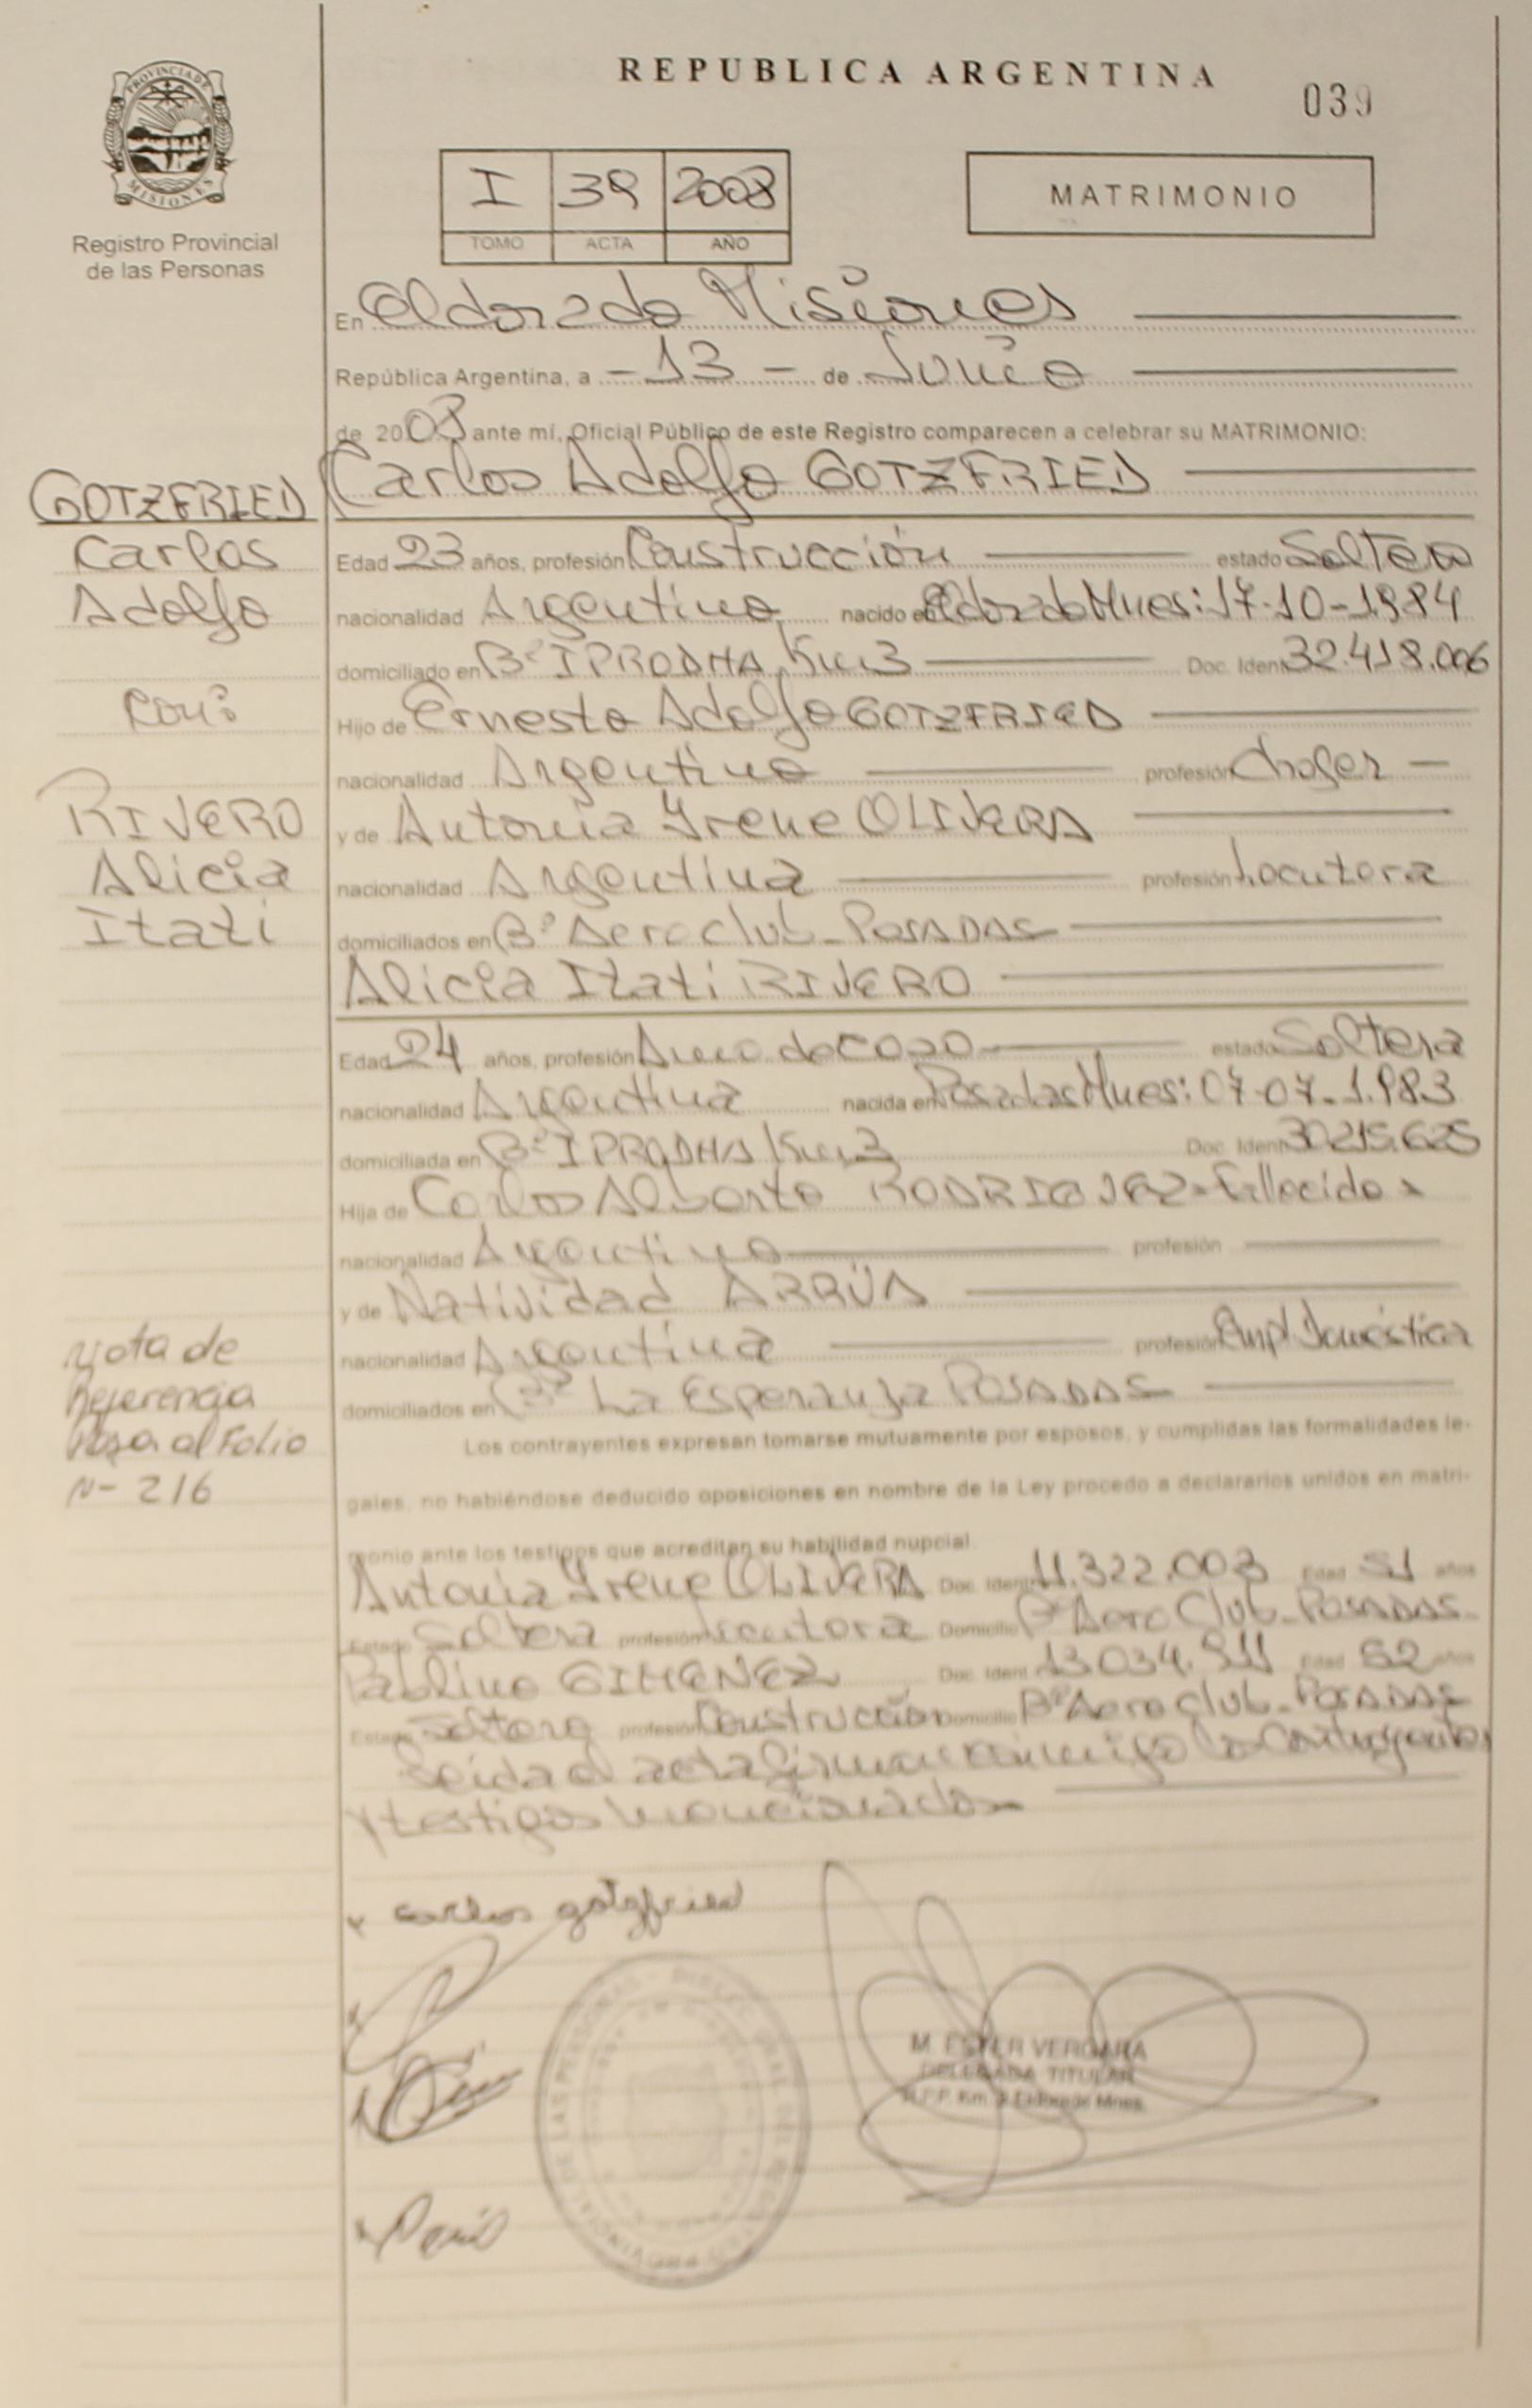 REPUBLICA ARGENTINA
039
PROVINCIA DE MISIONES
Registro Provincial
de las Personas
I 39 2008
TOMO ACTA AÑO
MATRIMONIO
En Eldorado Misiones
República Argentina, a - 13 - de Junio
de 2008 ante mí, Oficial Público de este Registro comparecen a celebrar su MATRIMONIO:
Carlos Adolfo GOTZFRIED
GOTZFRIED
Carlos
Adolfo
Con:
RIVERO
Alicia
Itati
Edad 23 años, profesión Construcción estado Soltero
nacionalidad Argentino nacido en Eldorado Mnes: 17-10-1984
domiciliado en Bº IPRODHA Km 3 Doc. Ident. 32.418.006
Hijo de Ernesto Adolfo GOTZFRIED
nacionalidad Argentino profesión Chofer
y de Antonia Irene OLIVERA
nacionalidad Argentina profesión Locutora
domiciliados en Bº Aero Club - POSADAS
Alicia Itati RIVERO
Edad 24 años, profesión Ama de casa estado Soltera
nacionalidad Argentina nacida en Posadas Mnes: 07-07-1.983
domiciliada en Bº IPRODHA Km 3 Doc. Ident. 30.215.625
Hija de Carlos Alberto RODRIGUEZ - Fallecido -
nacionalidad Argentino profesión
y de Natividad ARRÚA
nacionalidad Argentina profesión Emp. Doméstica
domiciliados en Bº La Esperanza POSADAS
Nota de
Referencia
Pasa al Folio
N- 216
Los contrayentes expresan tomarse mutuamente por esposos, y cumplidas las formalidades le-
gales, no habiéndose deducido oposiciones en nombre de la Ley procedo a declararlos unidos en matri-
monio ante los testigos que acreditan su habilidad nupcial.
Antonia Irene OLIVERA Doc. Ident. 11.322.003 Edad 51 años
Estado Soltera profesión Locutora Domicilio Bº Aero Club - POSADAS -
Paulino GIMENEZ Doc. Ident. 13.034.911 Edad 52 años
Estado Soltero profesión Construcción Domicilio Bº Aero Club - POSADAS
Leida el acta firman conmigo los contrayentes
y testigos mencionados
carlos gotzfried
M. ESTER VERGARA
DELEGADA TITULAR
R.P.P. Km. 3 Eldorado Mnes.